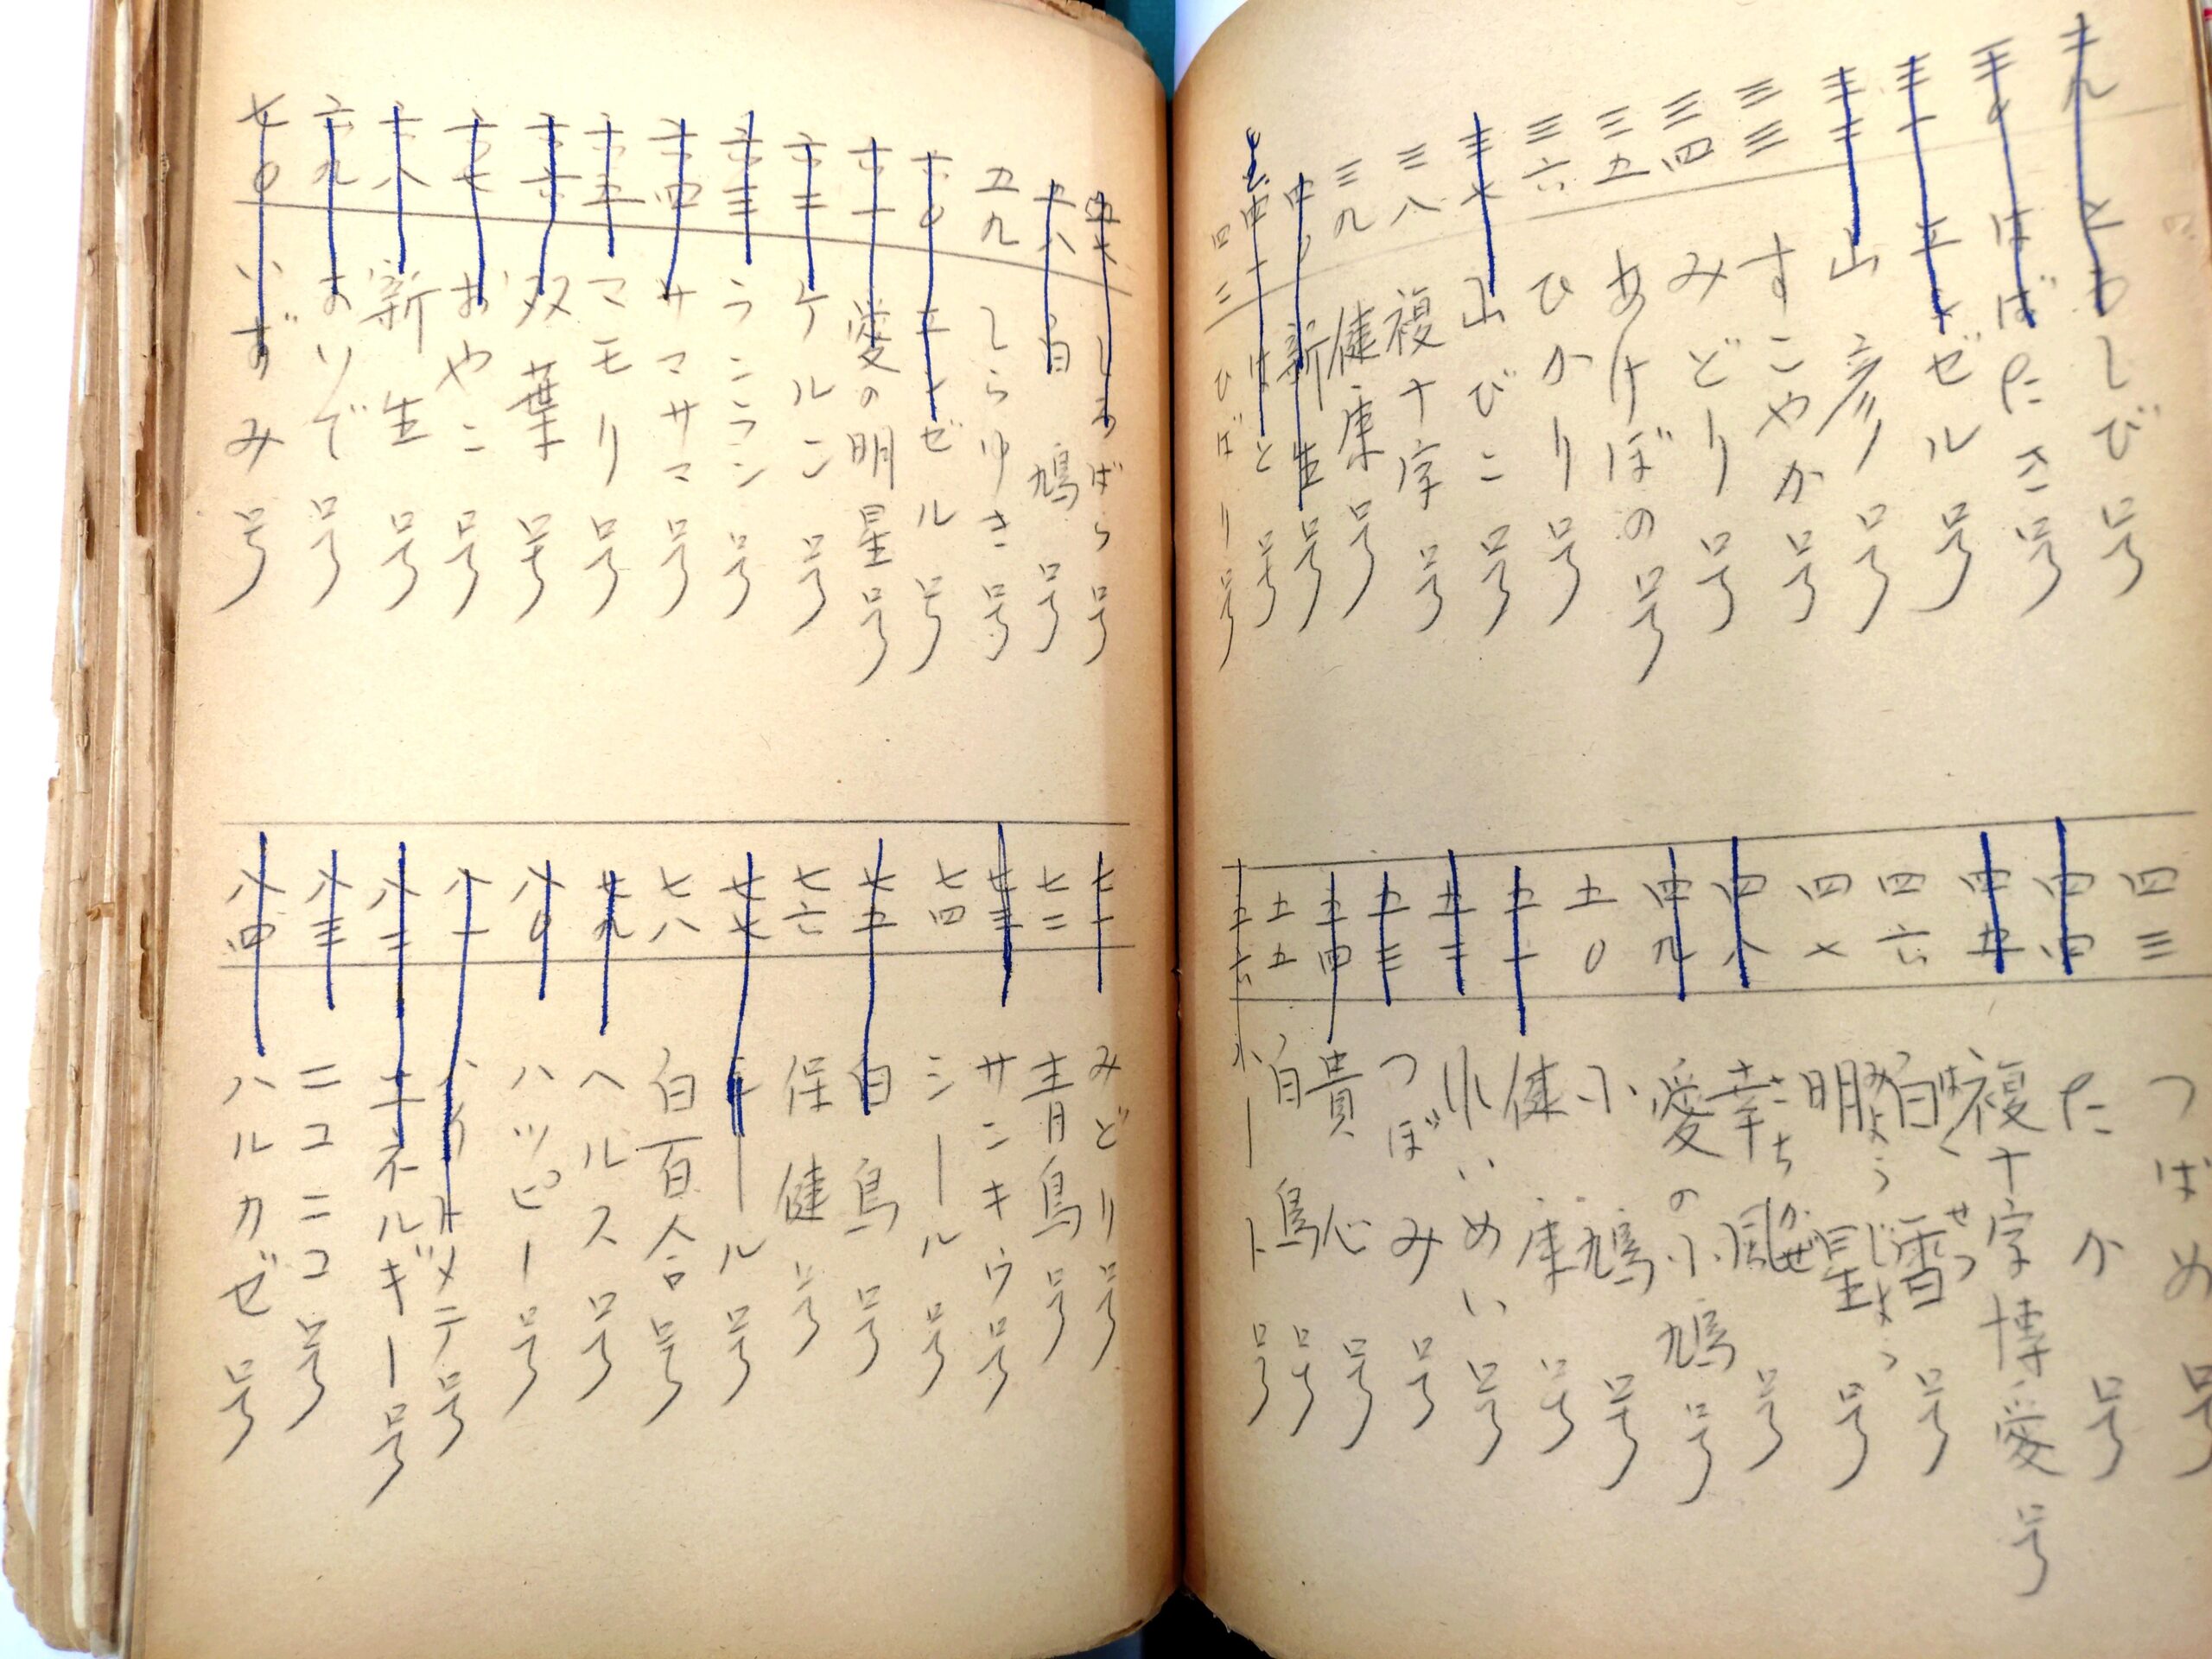 二九 ともしび号
三〇 はばたき号
三一 エンゼル号
三二 山彦号
三三 すこやか号
三四 みどり号
三五 あけぼの号
三六 ひかり号
三七 山びこ号
三八 複十字号
三九 健康号
新生号
はと号
ひばり号
四三 つばめ号
四四 たか号
四五 複十字博愛号
四六 白雪号 はくせつ
四七 明星号 みようじよう
四八 幸風号 さちかぜ
四九 愛の小鳩号
五〇 小鳩号
五一 健康号
五二 小いめい号
五三 つぼみ号
五四 貴心号
五五 白鳥号
五六 ハート号
五七 しろばら号
五八 白鳩号
五九 しらゆき号
六〇 エンゼル号
六一 愛の明星号
六二 ケルン号
六三 ランラン号
六四 ササママ号
六五 マモリ号
六六 双葉号
六七 おやこ号
六八 新生号
六九 おりで号
七〇 いずみ号
七一 みどり号
七二 青鳥号
七三 サンキウ号
七四 シール号
七五 白鳥号
七六 保健号
七七 シール号
七八 白百合号
七九 ヘルス号
八〇 ハッピー号
八一
八二 エネルギー号
八三 ニコニコ号
八四 ハルカゼ号